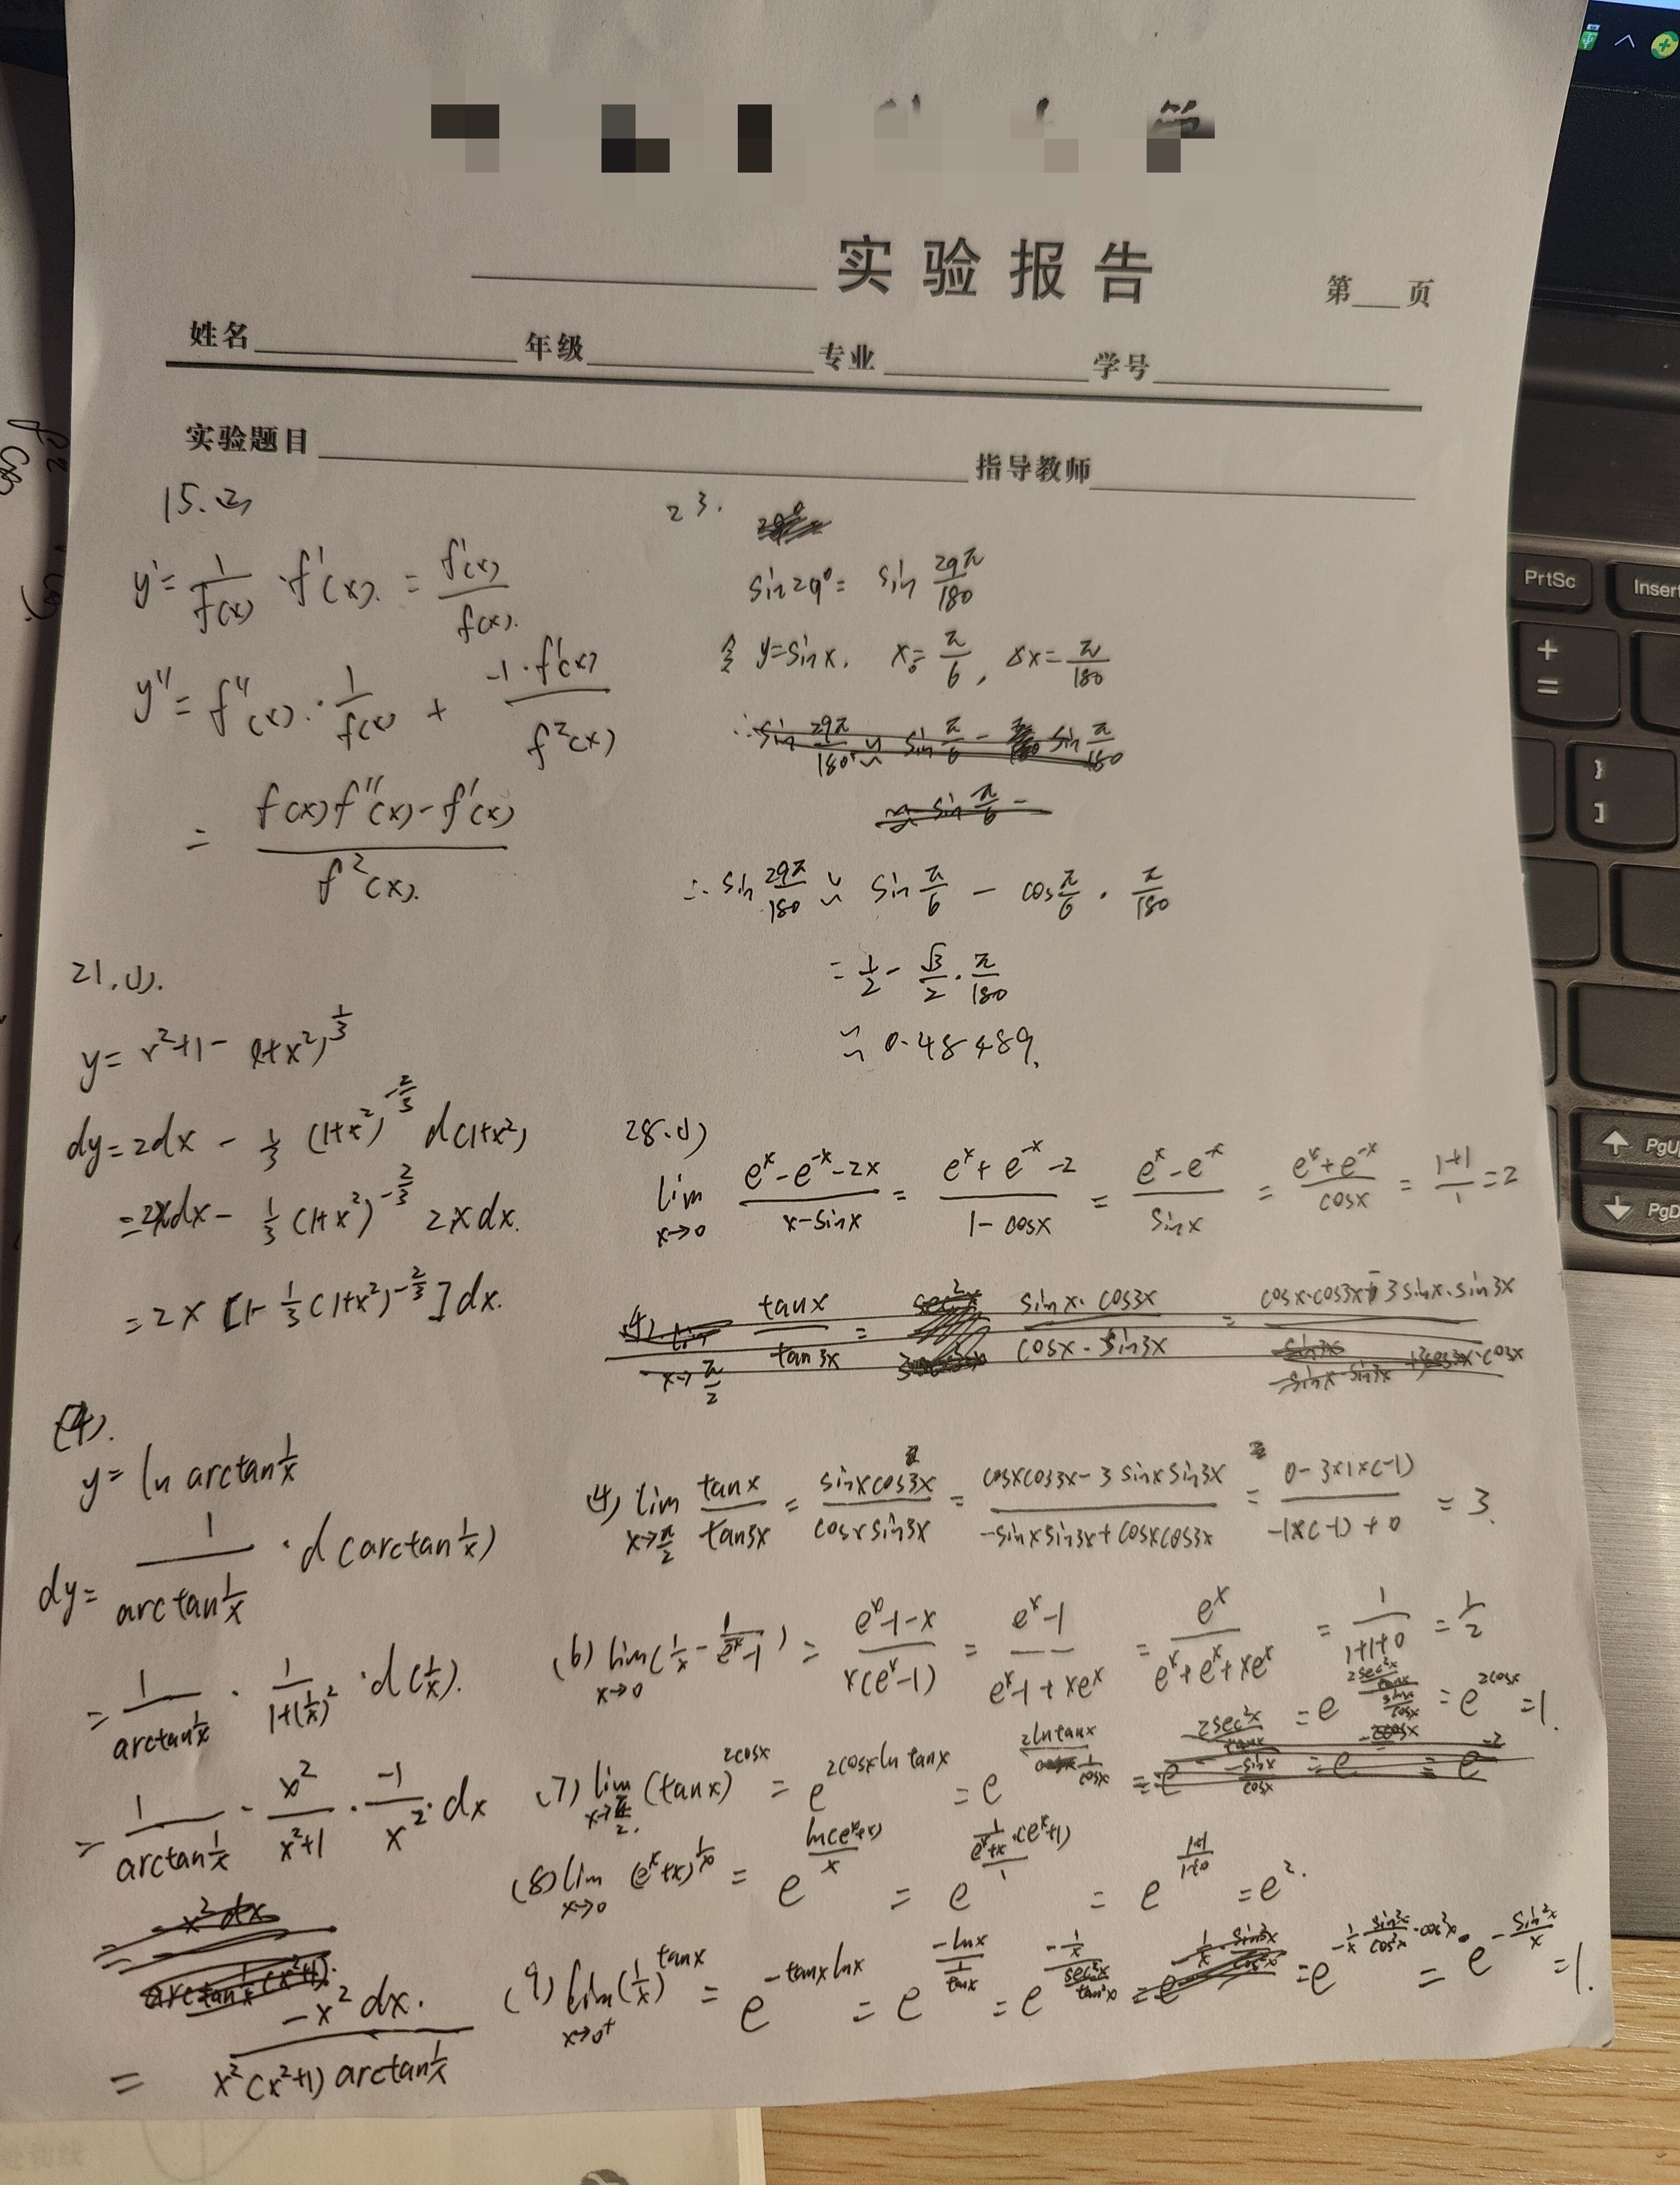 实验报告
第 页
姓名 年级 专业 学号
实验题目 指导教师
15.(2)
y' = 1/f(x) · f'(x) = f'(x)/f(x).
y'' = f''(x) · 1/f(x) + -1·f'(x)/f²(x)
= f(x)f''(x) - f'(x) / f²(x).
21.(1).
y = x²+1 - (1+x²)^(1/3)
dy = 2dx - 1/3 (1+x²)^(-2/3) d(1+x²)
= 2xdx - 1/3 (1+x²)^(-2/3) 2xdx.
= 2x [1 - 1/3 (1+x²)^(-2/3)] dx.
(4).
y = ln arctan 1/x
dy = 1/(arctan 1/x) · d(arctan 1/x)
= 1/(arctan 1/x) · 1/(1+(1/x)²) · d(1/x).
= 1/(arctan 1/x) · x²/(x²+1) · -1/x² · dx
= -x² dx. / x²(x²+1) arctan 1/x
23.
sin29° = sin 29π/180
令 y=sinx, x₀= π/6, δx= π/180
∴ sin 29π/180 ≈ sin π/6 - cos π/6 · π/180
= 1/2 - √3/2 · π/180
≈ 0.48489.
28.(1)
lim x→0 (e^x - e^-x - 2x)/(x - sinx) = (e^x + e^-x - 2)/(1 - cosx) = (e^x - e^-x)/sinx = (e^x + e^-x)/cosx = (1+1)/1 = 2
(4) lim x→π/2 tanx/tan3x = sinxcos3x/cosxsin3x = (cosxcos3x - 3sinxsin3x)/(-sinxsin3x + cosxcos3x) = (0-3×1×(-1))/(-1×(-1)+0) = 3.
(6) lim x→0 (1/x - 1/(e^x-1)) = (e^x-1-x)/(x(e^x-1)) = (e^x-1)/(e^x-1+xe^x) = e^x/(e^x+e^x+xe^x) = 1/(1+1+0) = 1/2
(7) lim x→π/2 (tanx)^(2cosx) = e^(2cosx ln tanx) = e^(2ln tanx/(1/cosx)) = e = e^(2cosx) = 1.
(8) lim x→0 (e^x+x)^(1/x) = e^(ln(e^x+x)/x) = e^((1/(e^x+x)·(e^x+1))/1) = e^((1+1)/(1+0)) = e².
(9) lim x→0⁺ (1/x)^tanx = e^(-tanx lnx) = e^(-lnx/(1/tanx)) = e^(-(1/x)/(sec²x/tan²x)) = e^(-1/x · sin²x/cos²x · cos²x) = e^(-sin²x/x) = 1.